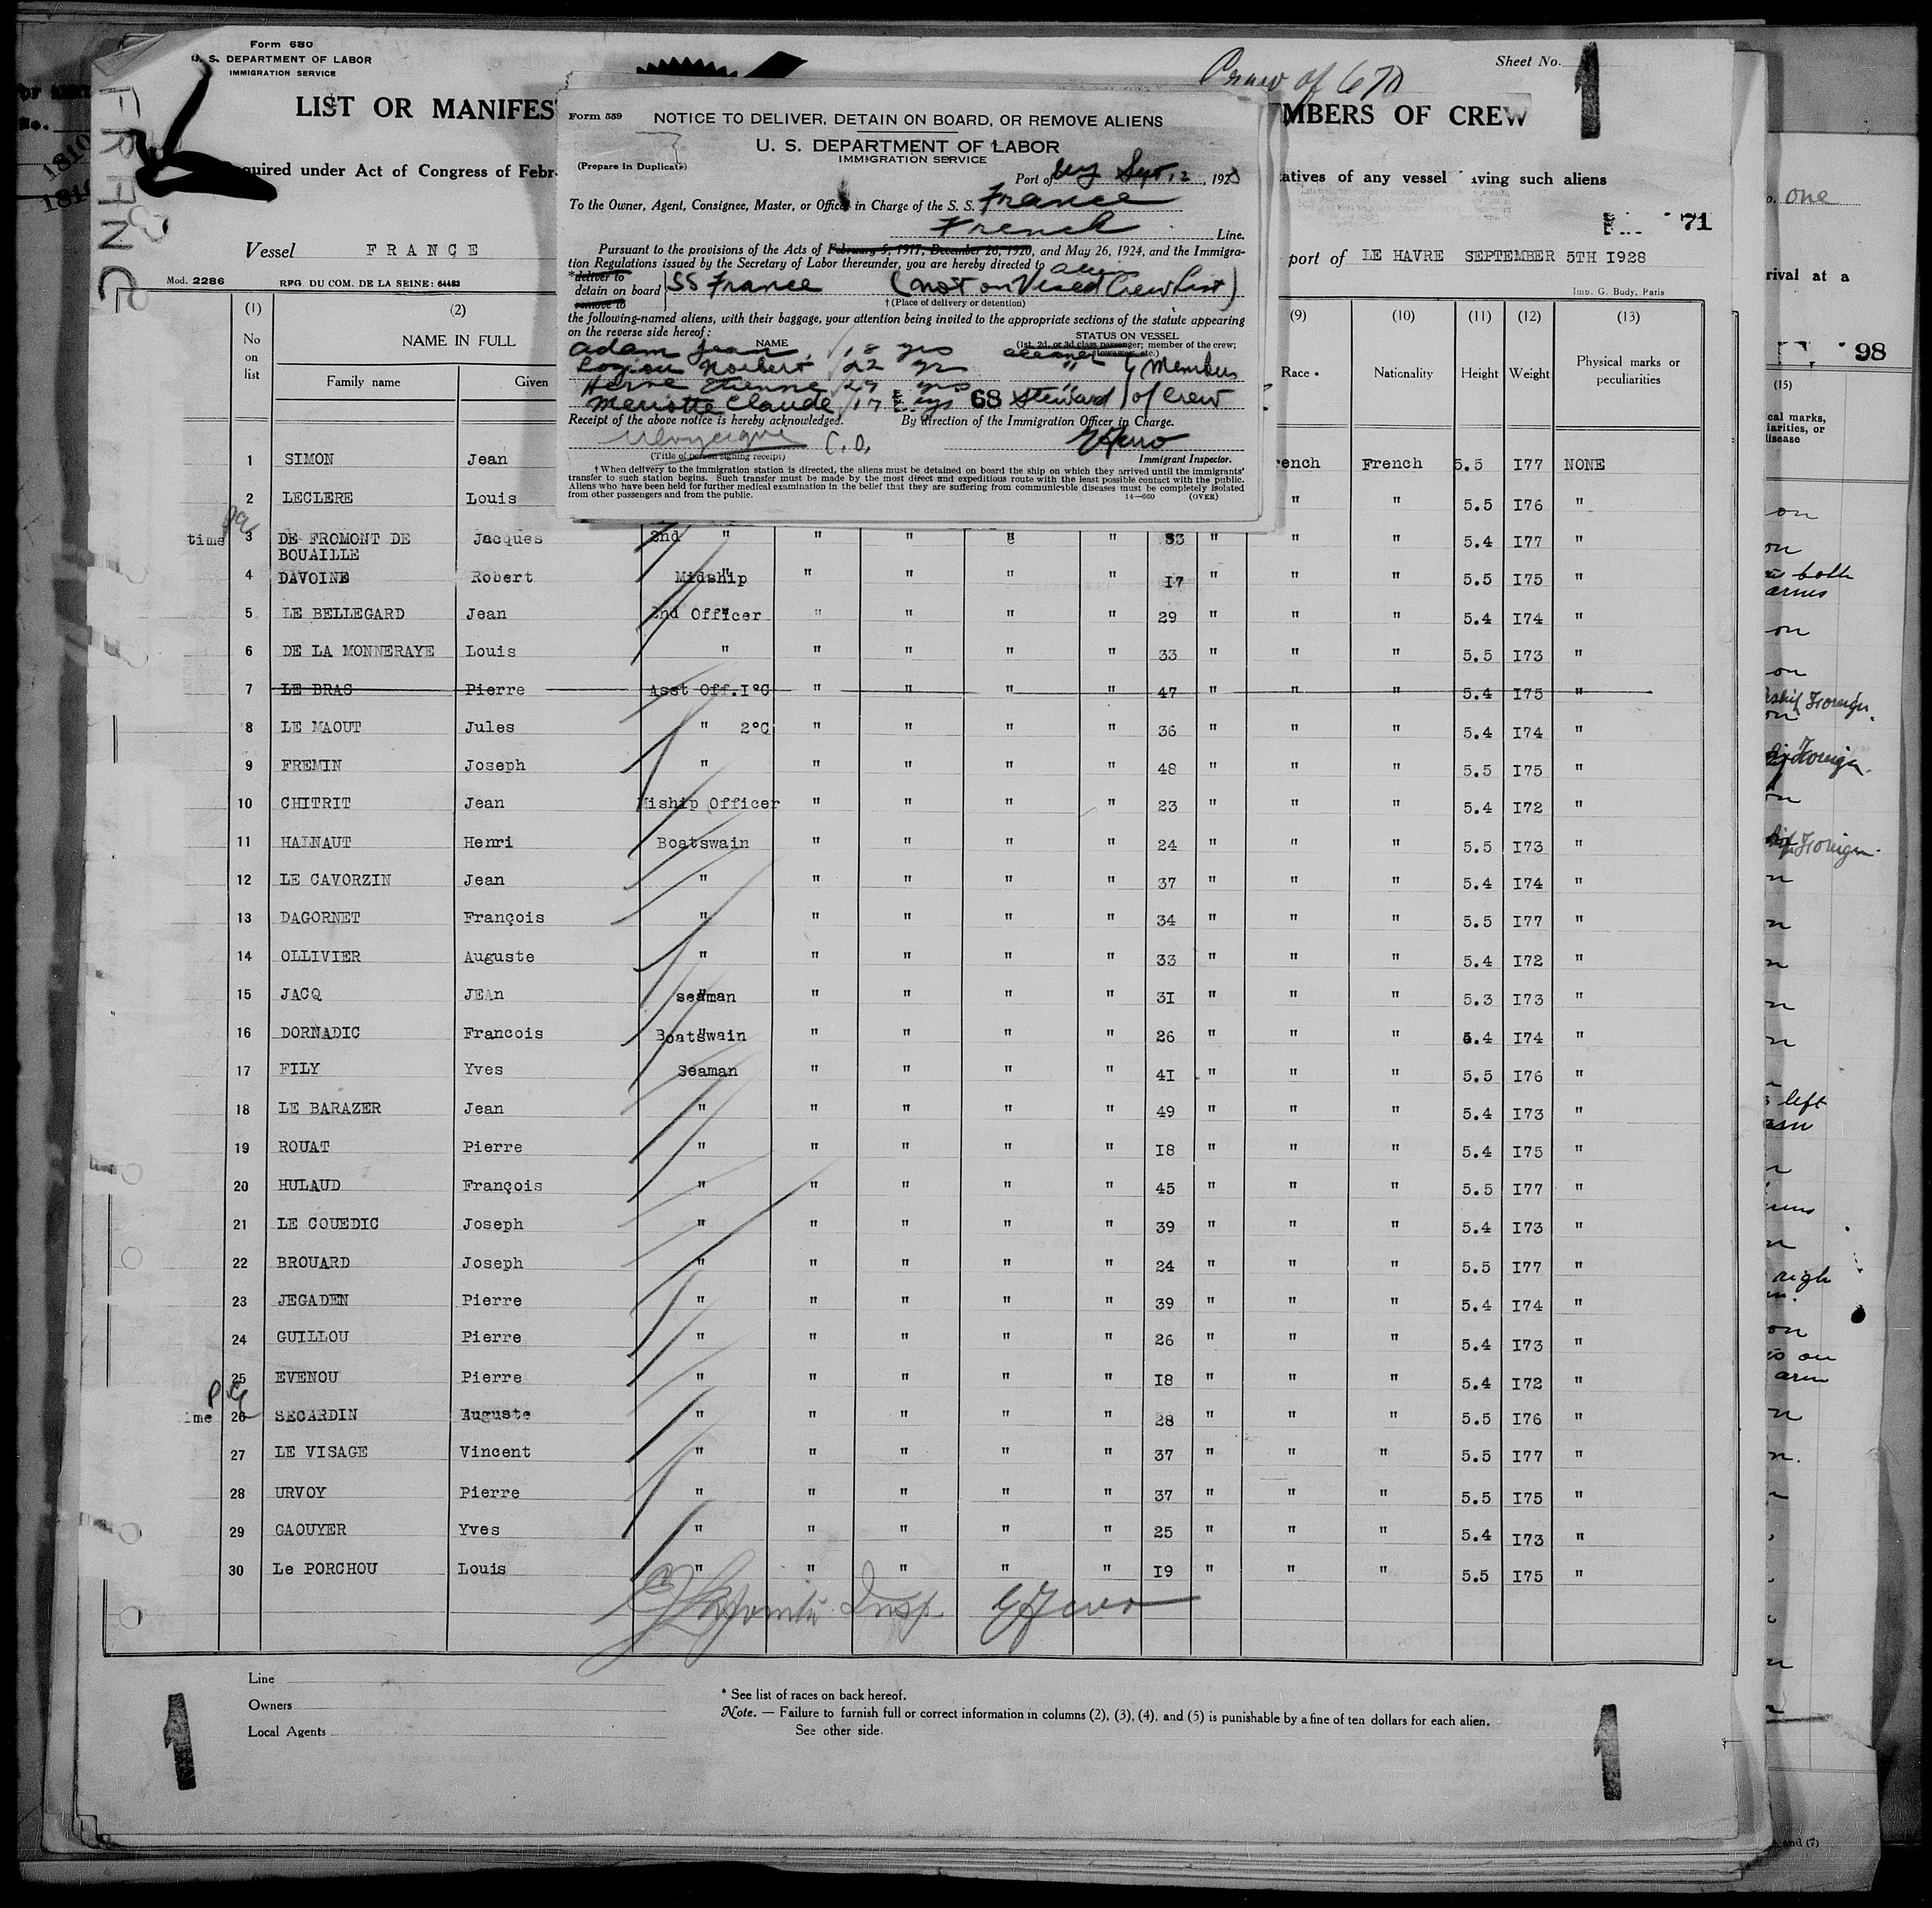 Form 680
U. S. DEPARTMENT OF LABOR
IMMIGRATION SERVICE
Sheet No. 1
Crew of 670
LIST OR MANIFES
MBERS OF CREW
quired under Act of Congress of Febr
tatives of any vessel aving such aliens
71
Vessel FRANCE
port of LE HAVRE SEPTEMBER 5TH I928
Mod. 2286 RPG. DU COM. DE LA SEINE: 64483
Imp. G. Budy, Paris
FRANCE
Form 559
NOTICE TO DELIVER, DETAIN ON BOARD, OR REMOVE ALIENS
U. S. DEPARTMENT OF LABOR
IMMIGRATION SERVICE
(Prepare in Duplicate)
Port of NY Sept 12, 1928
To the Owner, Agent, Consignee, Master, or Officer in Charge of the S. S. France
French Line.
Pursuant to the provisions of the Acts of February 5, 1917, December 26, 1920, and May 26, 1924, and the Immigra-
tion Regulations issued by the Secretary of Labor thereunder, you are hereby directed to
*deliver to
detain on board SS France (not on Visaed alien Crew List)
remove to
†(Place of delivery or detention)
the following-named aliens, with their baggage, your attention being invited to the appropriate sections of the statute appearing
on the reverse side hereof:
NAME
STATUS ON VESSEL
(1st, 2d, or 3d class passenger; member of the crew;
stowaway, etc.)
Adam Jean 18 yrs cleaner
Norbert 22 yrs " Members
Herve Etienne 27 yrs "
Meriotte Claude 17 yrs 68 Steward of Crew
Receipt of the above notice is hereby acknowledged.
By direction of the Immigration Officer in Charge.
C.O.
(Title of person signing receipt)
Immigrant Inspector.
†When delivery to the immigration station is directed, the aliens must be detained on board the ship on which they arrived until the immigrants'
transfer to such station begins. Such transfer must be made by the most direct and expeditious route with the least possible contact with the public.
Aliens who have been held for further medical examination in the belief that they are suffering from communicable diseases must be completely isolated
from other passengers and from the public.
14—660 (OVER)
(1) (2) (9) (10) (11) (12) (13)
No on list NAME IN FULL Race * Nationality Height Weight Physical marks or peculiarities
Family name Given
1 SIMON Jean ench French 5.5 I77 NONE
2 LECLERE Louis " " 5.5 I76 "
time 3 DE FROMONT DE BOUAILLE Jacques 2nd " " " " " 33 " " " 5.4 I77 "
4 DAVOINE Robert Midship " " " " I7 " " " 5.5 I75 "
5 LE BELLEGARD Jean 2nd Officer " " " " 29 " " " 5.4 I74 "
6 DE LA MONNERAYE Louis " " " " " 33 " " " 5.5 I73 "
7 LE BRAS Pierre Asst Off.I°C " " " " 47 " " " 5.4 I75 "
8 LE MAOUT Jules " 2°C " " " " 36 " " " 5.4 I74 "
9 FREMIN Joseph " " " " " 48 " " " 5.5 I75 "
10 CHITRIT Jean Miship Officer " " " " 23 " " " 5.4 I72 "
11 HAINAUT Henri Boatswain " " " " 24 " " " 5.5 I73 "
12 LE CAVORZIN Jean " " " " " 37 " " " 5.4 I74 "
13 DAGORNET François " " " " " 34 " " " 5.5 I77 "
14 OLLIVIER Auguste " " " " " 33 " " " 5.4 I72 "
15 JACQ JEAn seaman " " " " 3I " " " 5.3 I73 "
16 DORNADIC Francois Boatswain " " " " 26 " " " 5.4 I74 "
17 FILY Yves Seaman " " " " 4I " " " 5.5 I76 "
18 LE BARAZER Jean " " " " " 49 " " " 5.4 I73 "
19 ROUAT Pierre " " " " " I8 " " " 5.4 I75 "
20 HULAUD François " " " " " 45 " " " 5.5 I77 "
21 LE COUEDIC Joseph " " " " " 39 " " " 5.4 I73 "
22 BROUARD Joseph " " " " " 24 " " " 5.5 I77 "
23 JEGADEN Pierre " " " " " 39 " " " 5.4 I74 "
24 GUILLOU Pierre " " " " " 26 " " " 5.4 I73 "
25 EVENOU Pierre " " " " " I8 " " " 5.4 I72 "
ime 26 SECARDIN Auguste " " " " " 28 " " " 5.5 I76 "
27 LE VISAGE Vincent " " " " " 37 " " " 5.5 I77 "
28 URVOY Pierre " " " " " 37 " " " 5.5 I75 "
29 GAOUYER Yves " " " " " 25 " " " 5.4 I73 "
30 Le PORCHOU Louis " " " " " I9 " " " 5.5 I75 "
Insp.
Line
Owners
Local Agents
* See list of races on back hereof.
Note. — Failure to furnish full or correct information in columns (2), (3), (4), and (5) is punishable by a fine of ten dollars for each alien.
See other side.
1
1
one
rival at a
98
(15)
cal marks,
iarities, or
disease
both
arms
Foreign
Foreign
Foreign
left
arm
righ
on
arm
and (7)